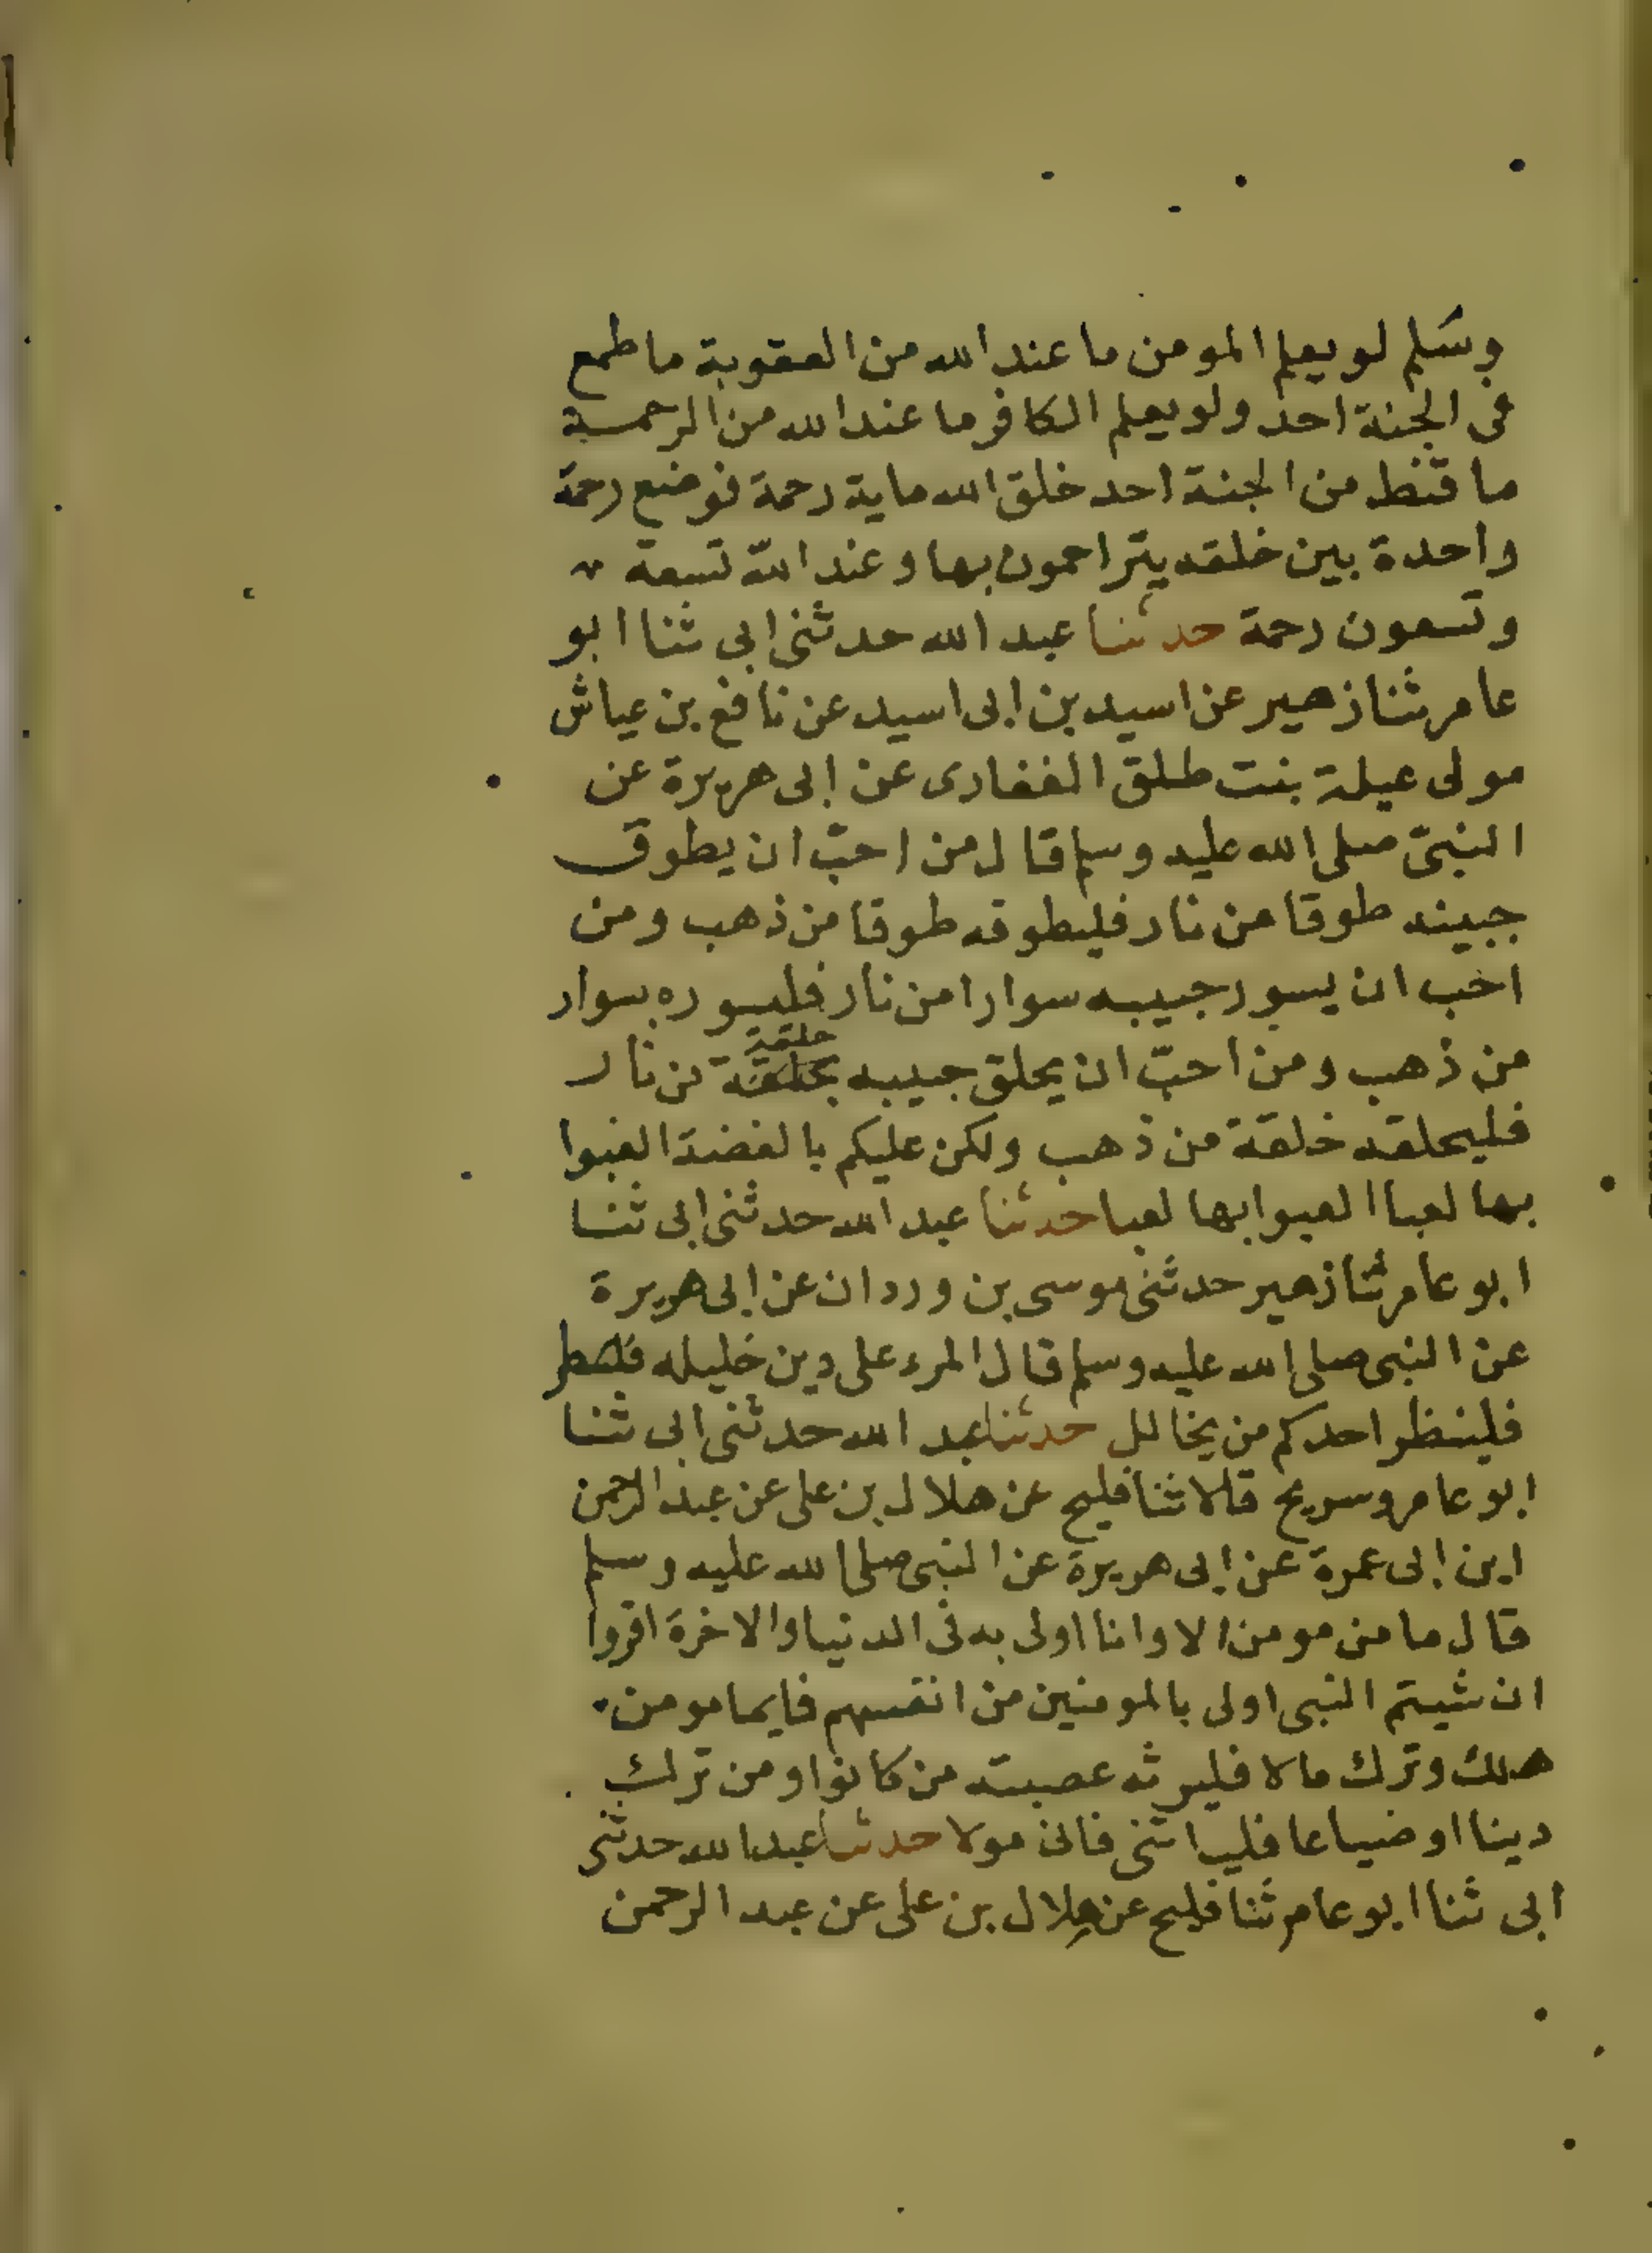 وسَلم لو يعلم المومن ما عند الله من العقوبة ما طمع
فى الجنة احد ولو يعلم الكافر ما عند الله من الرحمة
ما قنط من الجنة احد خلق الله ماية رحمة فوضع رحمة
واحدة بين خلقه يتراحمون بها وعند الله تسعة
وتسعون رحمة حدثنا عبد الله حدثنى ابى ثنا ابو
عامر ثنا زهير عن اسيد بن ابى اسيد عن نافع بن عياش
مولى عبلة بنت طلق الغفارى عن ابى هريرة عن
النبىّ صلى الله عليه وسلم قال من احبّ ان يطوق
جبينه طوقا من نار فليطوقه طوقا من ذهب ومن
احب ان يسور جبيبه سوارا من نار فليسوره بسوار
من ذهب ومن احبّ ان يحلق جبيبه حلقة من نار
فليحلقه خلقة من ذهب ولكن عليكم بالفضة العبوا
بها لعبا العبوا بها لعبا حدثنا عبد الله حدثنى ابى ثنا
ابو عامر ثنا زهير حدثنى موسى بن وردان عن ابى هريرة
عن النبى صلى الله عليه وسلم قال المرء على دين خليله
فلينظر احدكم من يخالل حدثنا عبد الله حدثنى ابى ثنا
ابو عامر وسريج قالا ثنا فليح عن هلال بن على عن عبد الرحمن
ابن ابى عمرة عن ابى هريرة عن النبى صلى الله عليه وسلم
قال ما من مومن الا وانا اولى به فى الدنيا والاخرة اقروا
ان شيتم النبى اولى بالمومنين من انفسهم فايما مومن
هلك وترك مالا فليرثه عصبته من كانوا ومن ترك
دينا او ضياعا فلياتنى فانى مولا حدثنا عبد الله حدثنى
ابى ثنا ابو عامر ثنا فليح عن هلال بن على عن عبد الرحمن